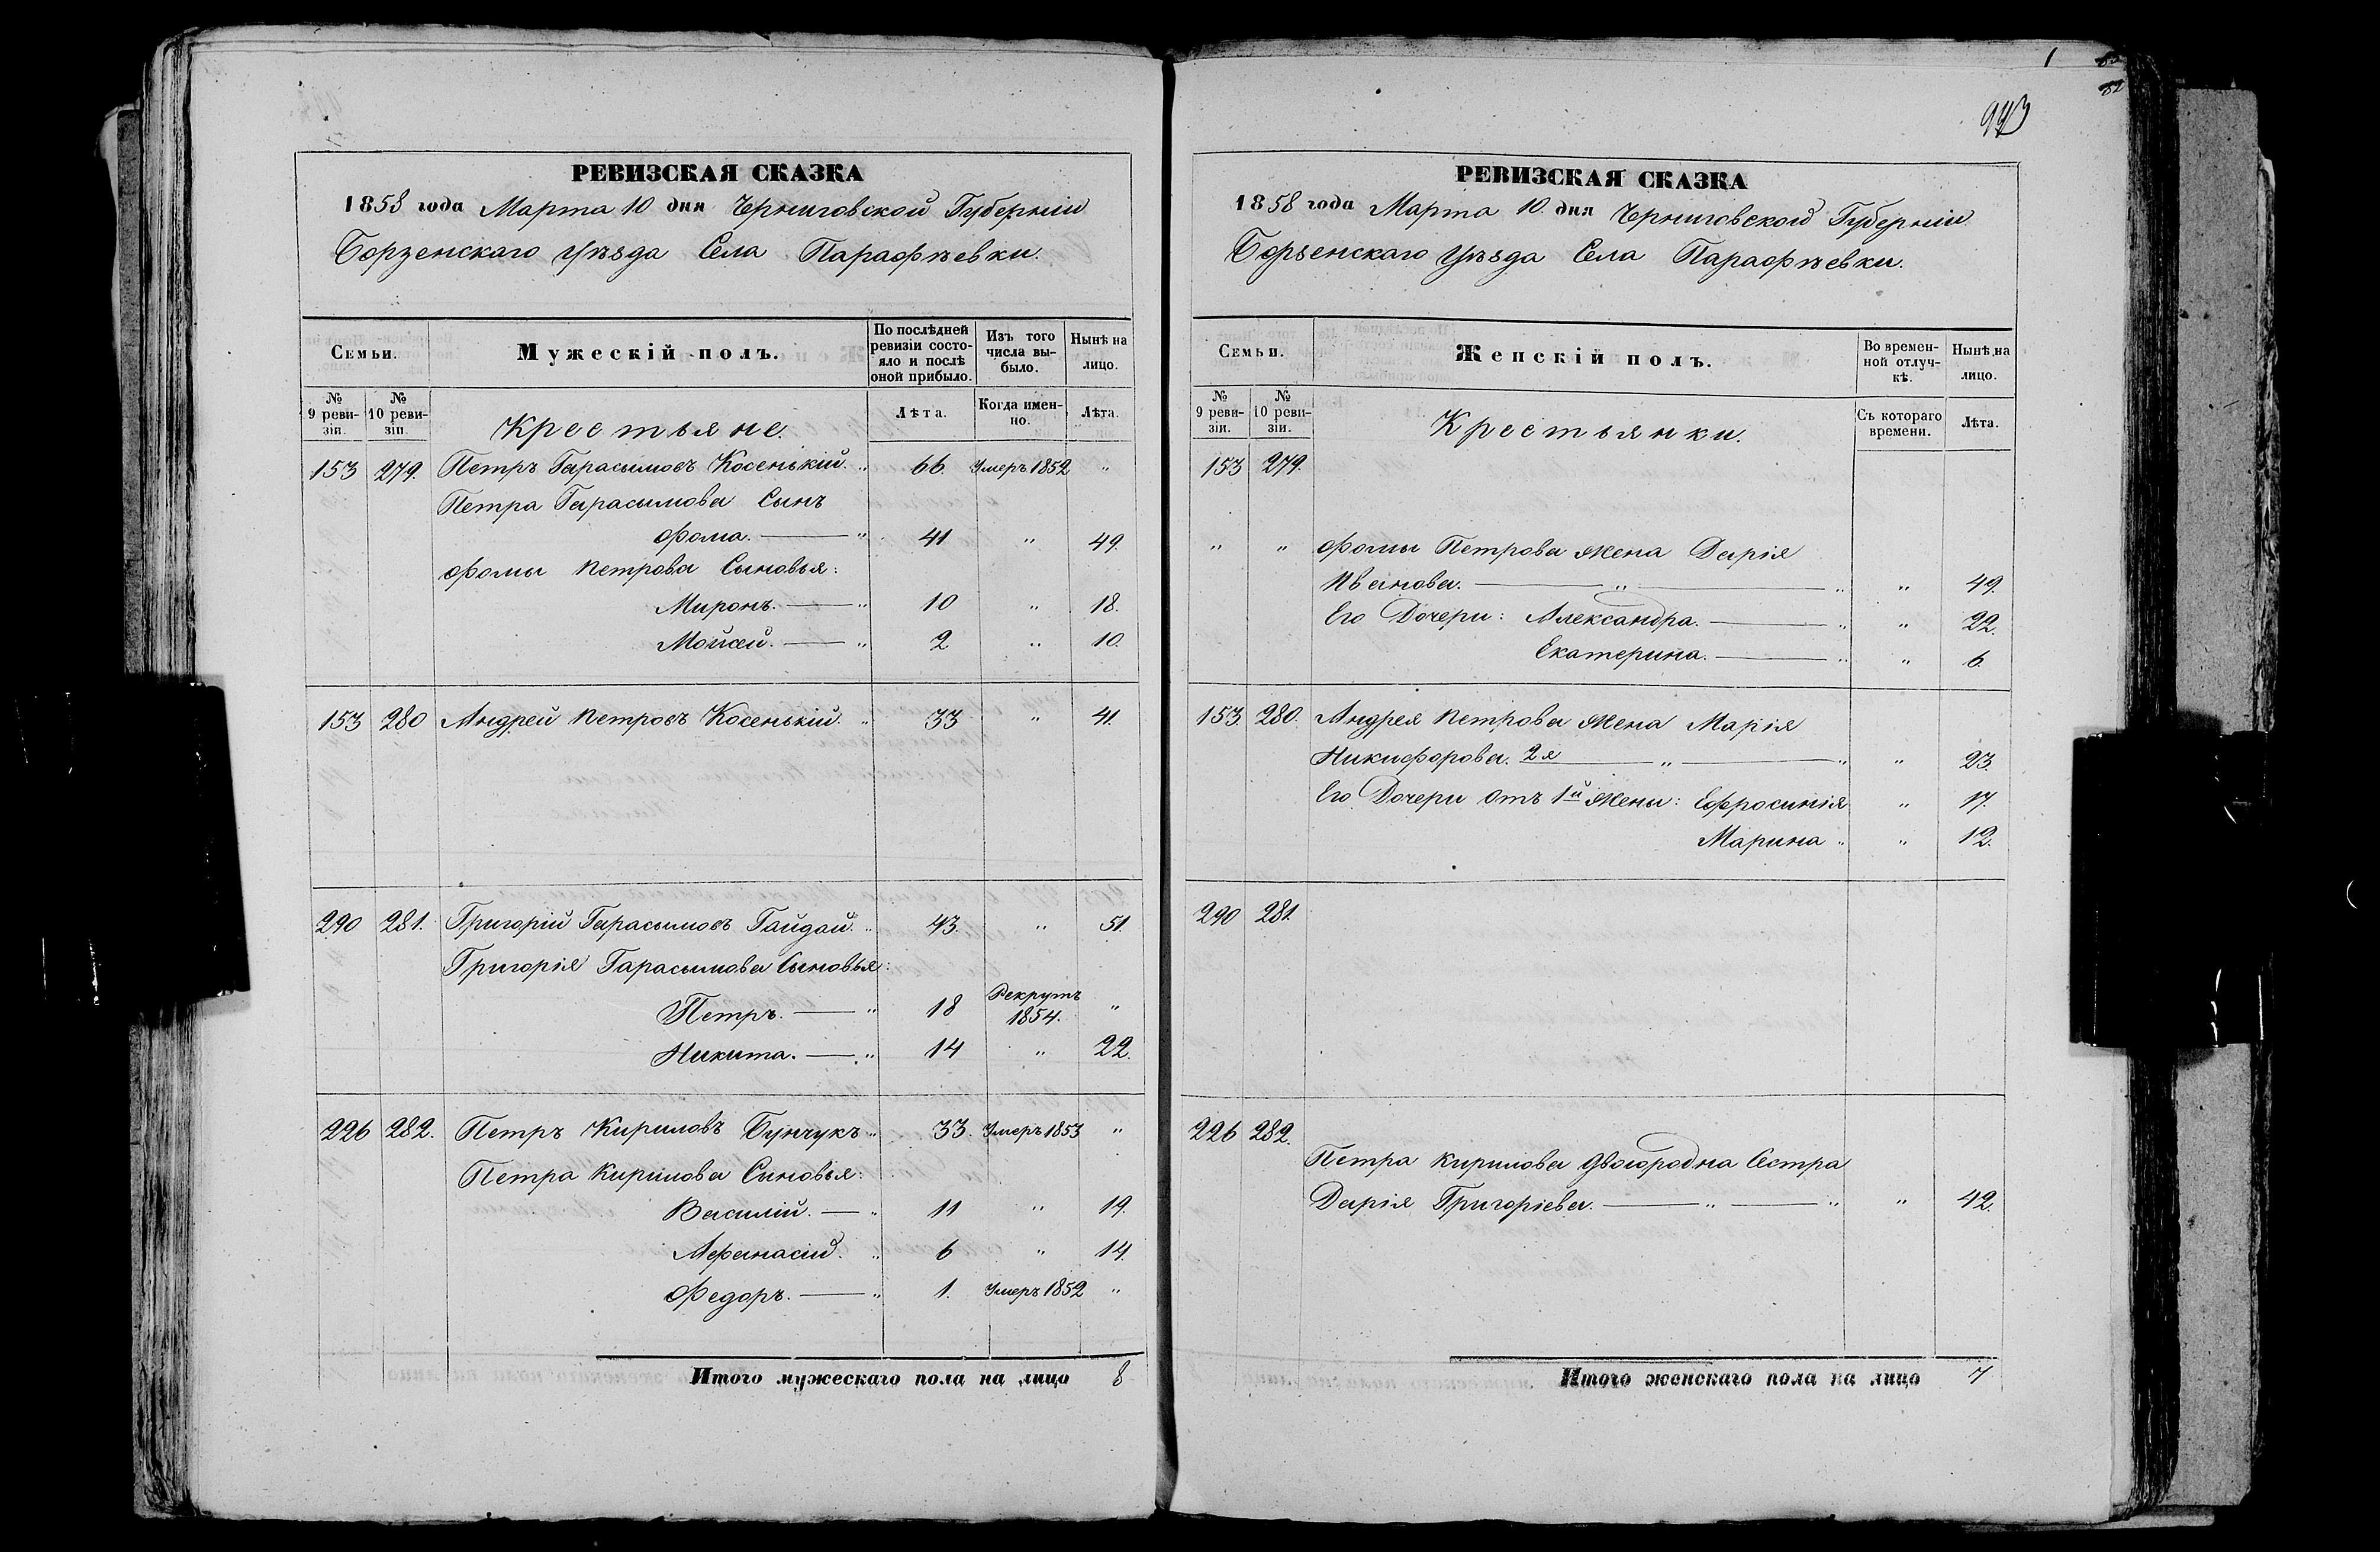 РЕВИЗСКАЯ СКАЗКА
1858 года Марта 10 дня Черниговской Губерніи
Борзенскаго Уѣзда Села Парафѣевки.
Семьи.
Мужескій полъ.
По послѣдней ревизіи состояло и послѣ оной прибыло.
Изъ того числа выбыло.
Нынѣ на лицо.
№ 9 ревизіи.
№ 10 ревизіи.
Крестьяне.
Лѣта.
Когда именно.
Лѣта.
153 279. Петръ Гарасымовъ Косенькій. " 66. Умеръ 1852 "
Петра Гарасымова Сынъ
Фома. — " 41 " 49.
Фомы Петрова Сыновья:
Миронъ. — " 10 " 18.
Мойсей. — " 2 " 10.
153 280 Андрей Петровъ Косенькій. " 33 " 41.
290 281. Григорій Гарасымовъ Гайдай. " 43. " 51.
Григорія Гарасымова Сыновья:
Петръ. — " 18 Рекрутъ 1854. "
Никита. — " 14 " 22.
226 282. Петръ Кириловъ Бунчукъ " 33. Умеръ 1853 "
Петра Кирилова Сыновья:
Василій. — " 11 " 19.
Афанасій. " 6 " 14.
Федоръ. — " 1. Умеръ 1852 "
Итого мужескаго пола на лицо 8
1
943
РЕВИЗСКАЯ СКАЗКА
1858 года Марта 10 дня Черниговской Губерніи
Борзенскаго Уѣзда Села Парафѣевки.
Семьи.
Женскій полъ.
Во временной отлучкѣ.
Нынѣ на лицо.
№ 9 ревизіи.
№ 10 ревизіи.
Крестьянки.
Съ котораго времени.
Лѣта.
153 279.
" " Фомы Петрова жена Дарія
Иванова. — " — " " 49.
Его Дочери: Александра. — " " 22.
Екатерина. — " " 6.
153 280. Андрея Петрова жена Марія
Никифорова. 2я — " — " " 23.
Его Дочери отъ 1й жены: Ефросинія " 17.
Марина " " 12.
290 281.
226 282.
Петра Кирилова двоюродна Сестра
Дарія Григоріева. — " — " " 42.
Итого женскаго пола на лицо 7